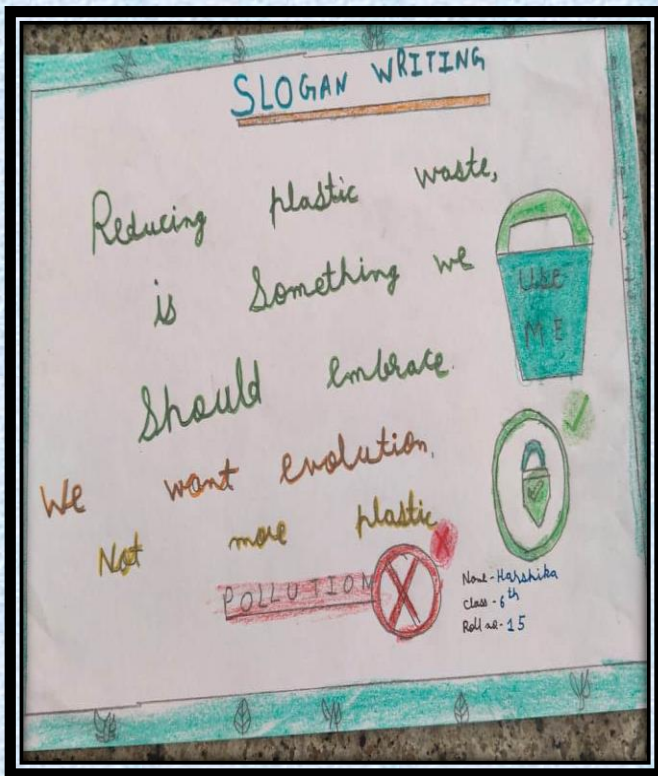 SLOGAN WRITING
Reducing plastic waste,
is Something we
Should embrace.
We want evolution,
Not more plastic
POLLUTION
USE
ME
Name - Harshika
Class - 6th
Roll no - 15